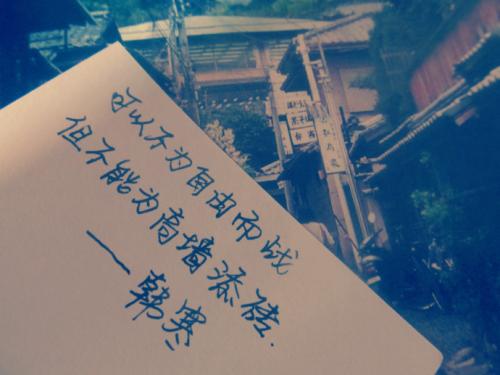 可以不为自由而战
但不能为高墙添砖.
——韩寒